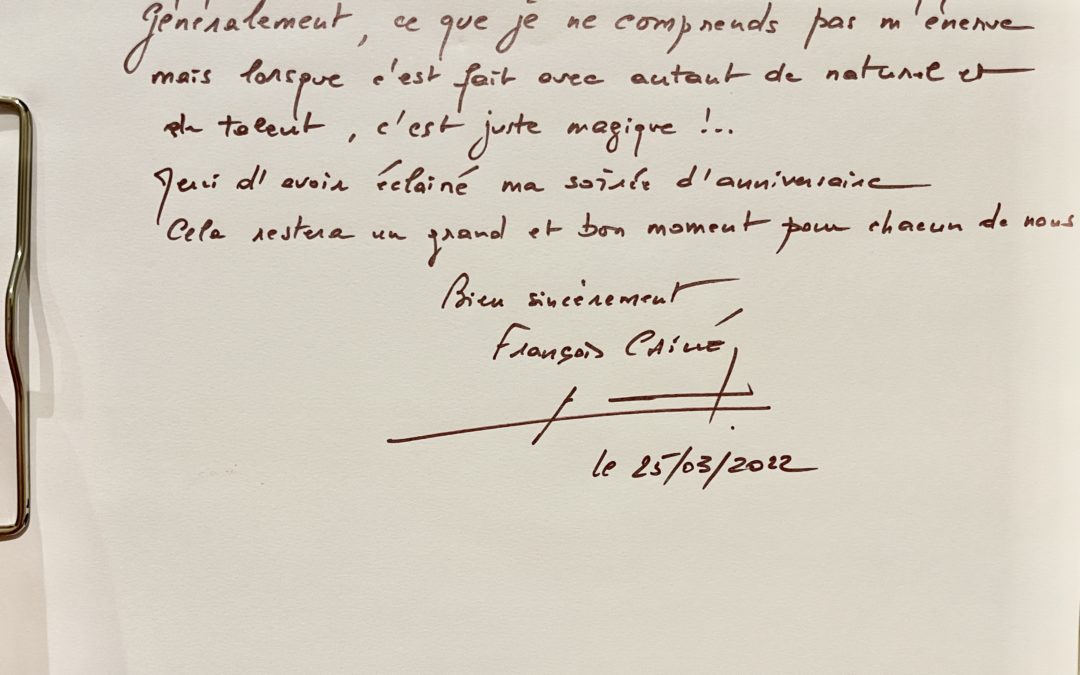 Généralement, ce que je ne comprends pas m'énerve
mais lorsque c'est fait avec autant de naturel et
de talent, c'est juste magique !..
Merci d'avoir éclairé ma soirée d'anniversaire
Cela restera un grand et bon moment pour chacun de nous
Bien sincèrement
François
le 25/03/2022